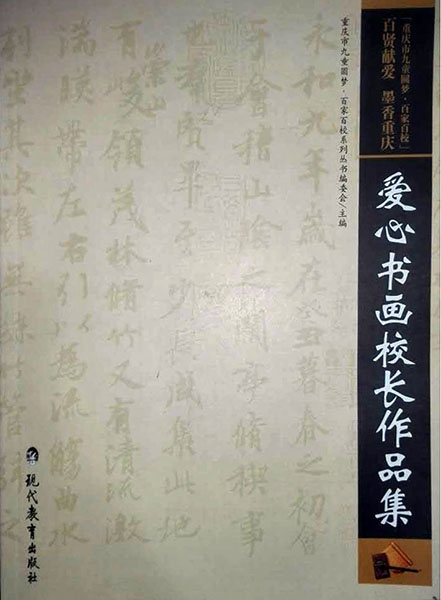 「重庆市九童圆梦·百家百校」
百贤献爱 墨香重庆
爱心书画校长作品集
重庆市九童圆梦·百家百校系列丛书编委会/主编
永和九年歲在癸丑暮春之初會
于會稽山陰之蘭亭脩禊事
也羣賢畢至少長咸集此地
有崇山峻領茂林脩竹又有清流激
湍暎帶左右引以為流觴曲水
列坐其次雖無絲竹管弦之
现代教育出版社